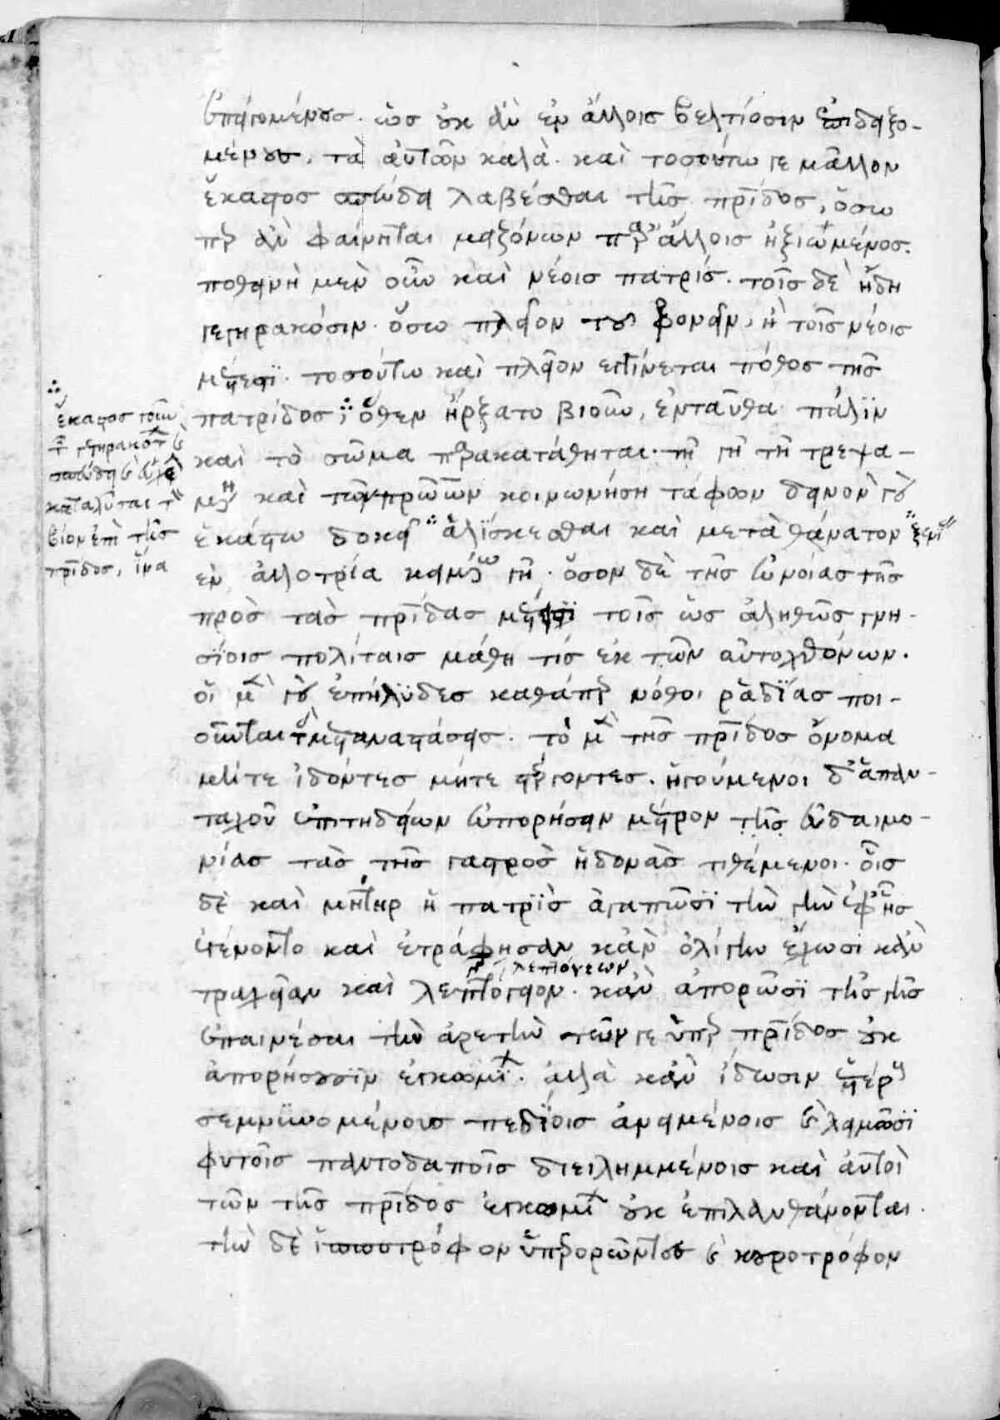 ἐπειγομένους. ὡς οὐκ ἂν ἐν ἄλλοις βελτίοσιν ἐπιδειξο-
μένους, τὰ αὐτῶν καλά. καὶ τοσούτω γε μᾶλλον
ἕκαστος σπεύδει λαβέσθαι τῆς πατρίδος, ὅσω
περ ἂν φαίνηται μειζόνων παρ' ἄλλοις ἠξιωμένος.
ποθεινὴ μὲν οὖν καὶ νέοις πατρίς. τοῖς δὲ ἤδη
γεγηρακόσιν. ὅσω πλεῖον τοῦ φρονεῖν, ἢ τοῖς νέοις
μέτεστϊ. τοσούτω καὶ πλεῖον ἐγγίνεται πόθος τῆς
πατρίδος ∴ ὅθεν ἤρξατο βιοῦν, ἐνταῦθα πάλϊν
καὶ τὸ σῶμα παρακατάθηται. τῇ γῇ τῇ θρεψα-
μένη καὶ τῶν πατρώων κοινωνήση τάφων δεινὸν γὰρ
ἑκάστω δοκεῖ ἁλΐσκεσθαι καὶ μετὰ θάνατον ξενι
ἐν ἀλλοτρία κειμένω γῇ. ὅσον δὲ τῆς εὐνοίας τῆς
πρὸς τὰς πατρίδας μέτεστϊ τοῖς ὡς ἀληθῶς γνη-
σΐοις πολίταις μάθη τίς ἐκ τῶν αὐτοχθόνων.
οἱ μὲν γὰρ ἐπήλυδες καθάπερ νόθοι ῥαδΐας ποι-
οῦνται τὰς μεταναστάσεις. τὸ μὲν τῆς πατρίδος ὄνομα
μήτε ἰδόντες μήτε στέργοντες. ἡγούμενοι δ' ἁπαν-
ταχοῦ ἐπιτηδείων εὐπορήσειν μέτρον τῆς εὐδαιμο-
νίας τὰς τῆς γαστρὸς ἡδονὰς τιθέμενοι. οἷς
δὲ καὶ μήτηρ ἡ πατρῒς ἀγαπῶσϊ τὴν γῆν ἐφ' ἧς
ἐγένοντο καὶ ἐτράφησαν κἂν ὀλίγην ἔχωσι κἂν
τραχεῖαν καὶ λεπτόγεων. κἂν ἀπορῶσϊ τῆς γῆς
ἐπαινέσαι τὴν ἀρετὴν τῶν γε ὑπὲρ πατρίδος οὐκ
ἀπορήσουσϊν ἐγκωμίων. ἀλλὰ κἂν ἴδωσιν ἑτέρους
σεμνϋνομένους πεδΐοις ἀνειμένοις καὶ λειμῶσϊ
φυτοῖς παντοδαποῖς διειλημμένοις καὶ αὐτοὶ
τῶν τῆς πατρίδος ἐγκωμίων οὐκ ἐπιλανθάνονται.
τὴν δὲ ἱπποτρόφον ὑπερορῶντες καὶ κουροτρόφον
∴
ἕκαστος γοῦν
τῶν γεγηρακότων καὶ
σπεύδει καὶ εὔχεται
καταλῦσαι τὸν
βίον ἐπὶ τῆς
πατρίδος, ἵνα
λεπτόγεων